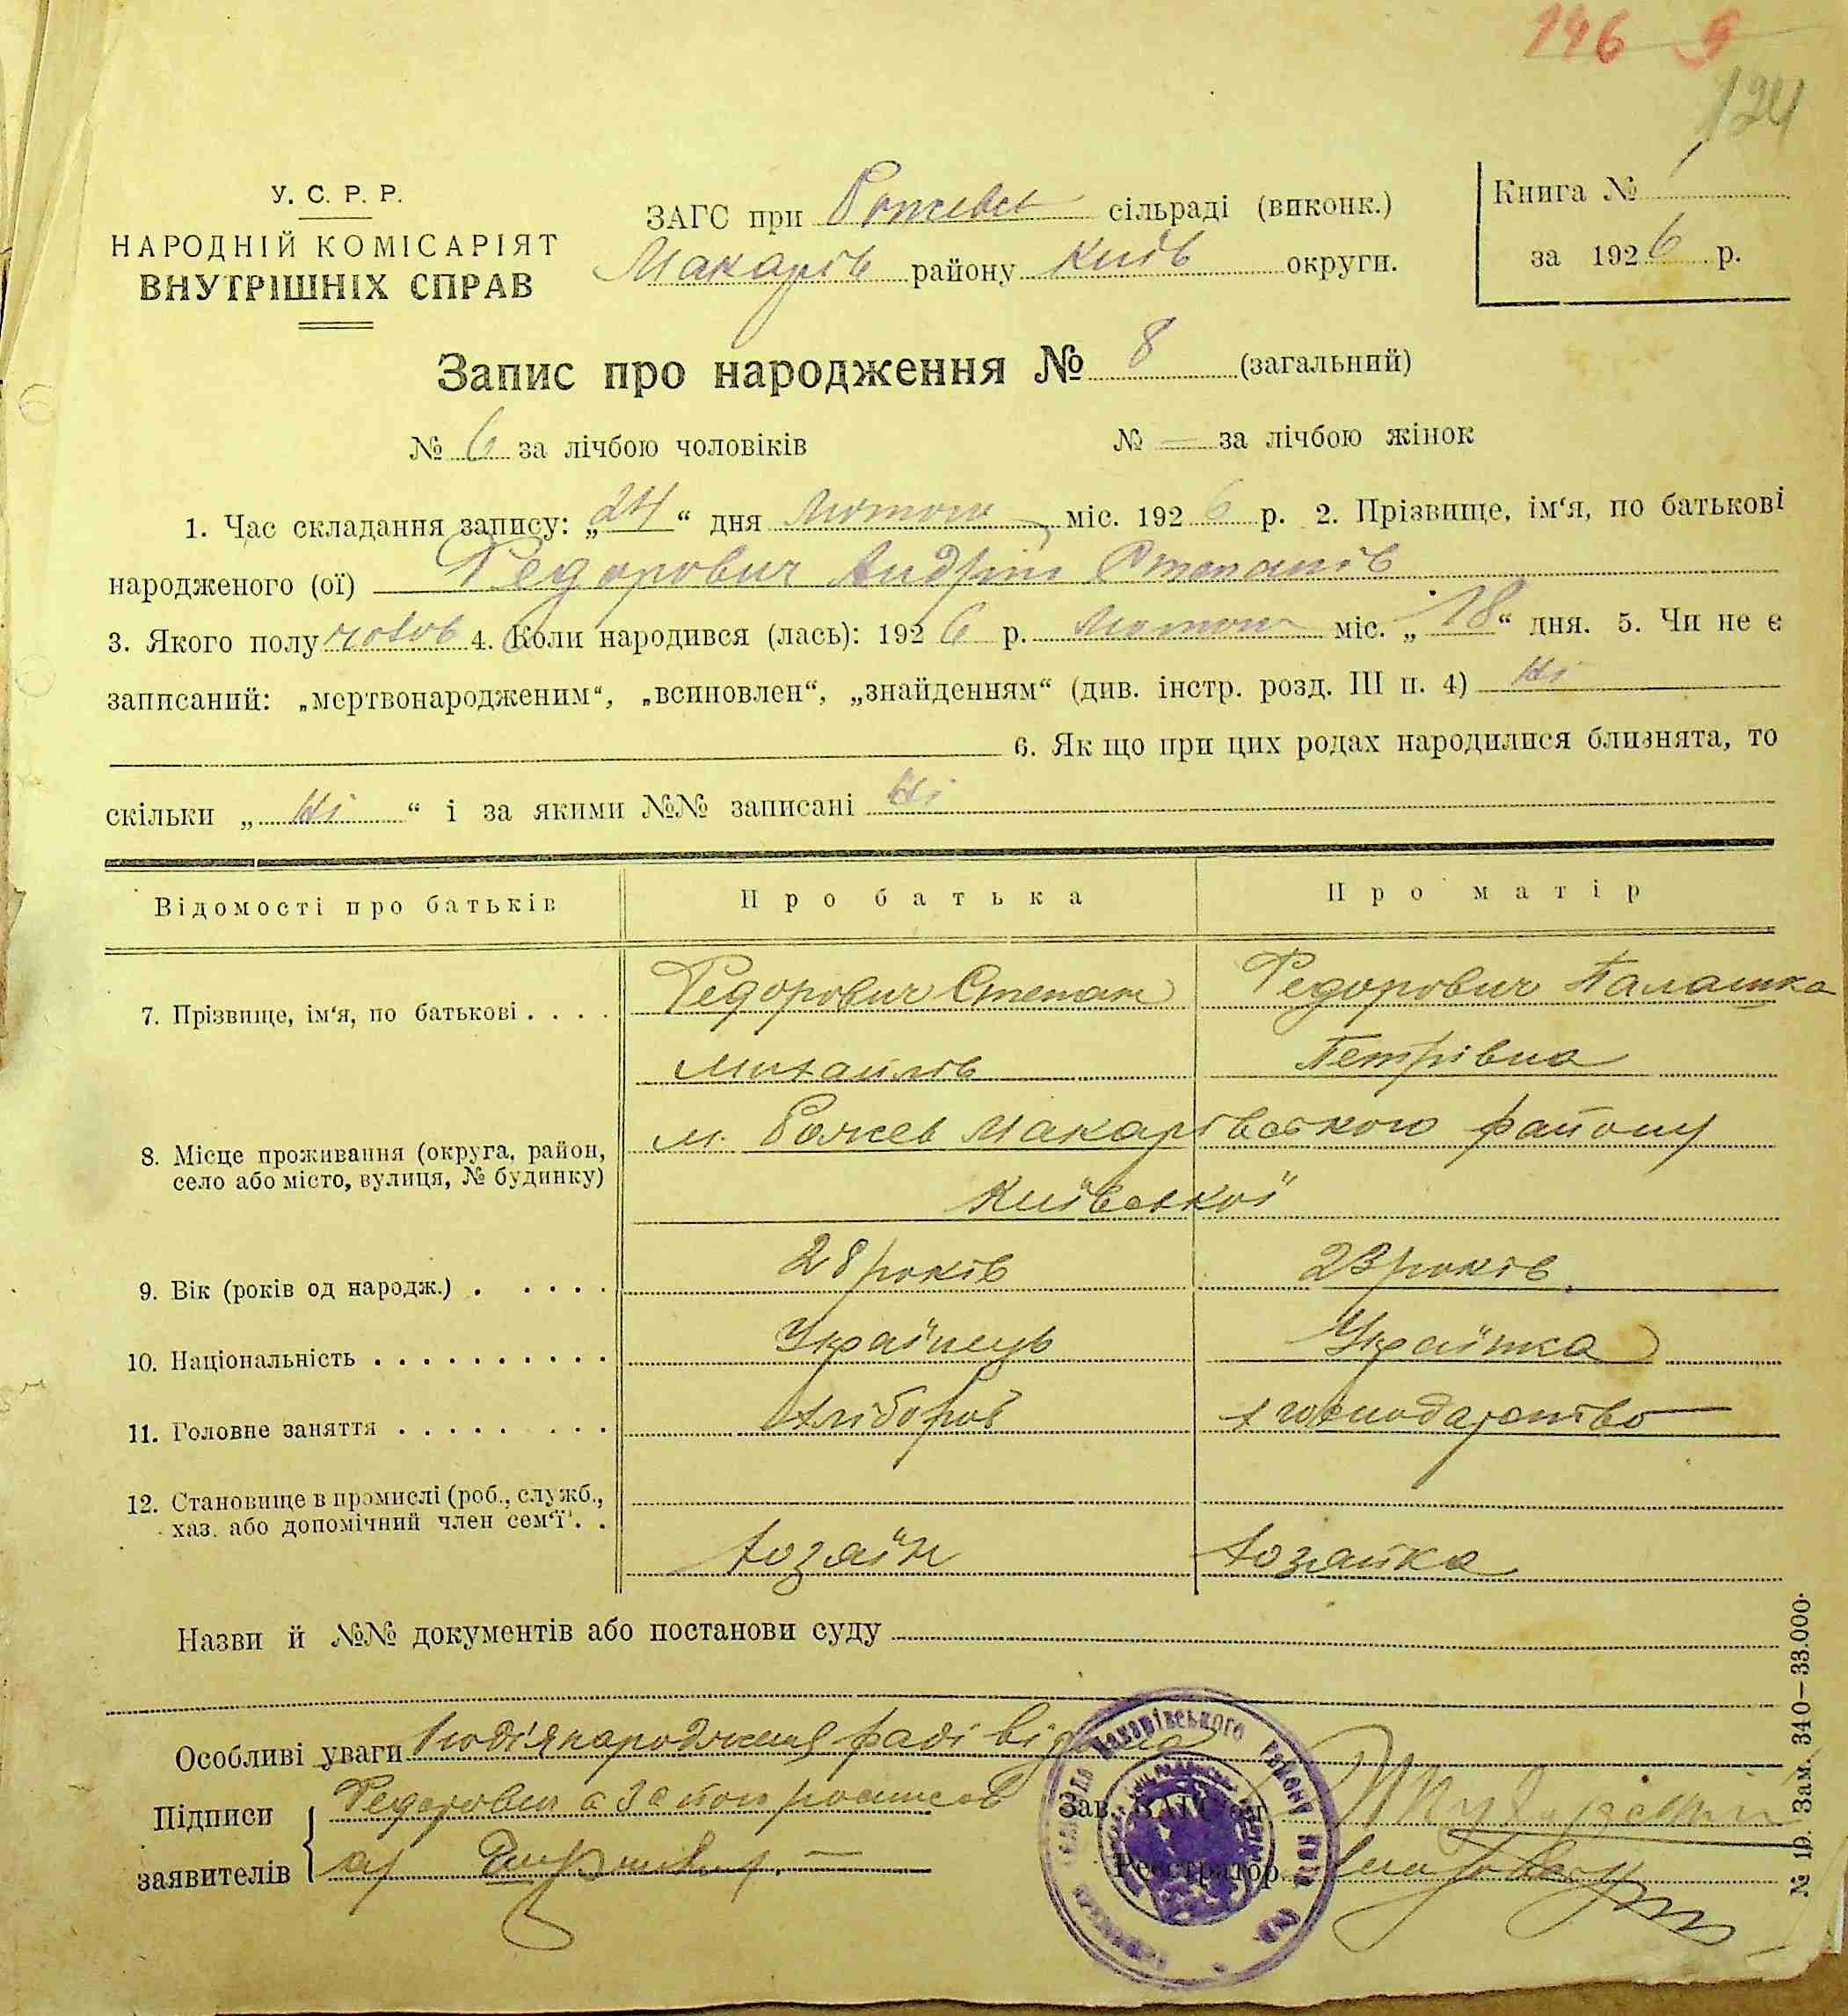 146 9
124
У. С. Р. Р.
НАРОДНІЙ КОМІСАРІЯТ
ВНУТРІШНІХ СПРАВ
ЗАГС при Рожевск сільраді (виконк.)
Макарів району Київ округи.
Книга № 1
за 1926 р.
Запис про народження № 8 (загальний)
№ 6 за лічбою чоловіків № = за лічбою жінок
1. Час складання запису: „24“ дня Лютого міс. 1926 р. 2. Прізвище, ім‘я, по батькові
народженого (ої) Федорович Андрій Степанів
3. Якого полу чолов 4. Коли народився (лась): 1926 р. Лютого міс. „18“ дня. 5. Чи не є
записаний: „мертвонародженим“, „всиновлен“, „знайденням“ (див. інстр. розд. III п. 4) Ні
6. Як що при цих родах народилися близнята, то
скільки „ Ні “ і за якими №№ записані Ні
Відомості про батьків Про батька Про матір
7. Прізвище, ім‘я, по батькові . . . . Федорович Степан Федорович Палашка
Михайлів Петрівна
8. Місце проживання (округа, район, село або місто, вулиця, № будинку) м. Рожев Макарівського району
Київської
9. Вік (років од народж.) . . . . . 28 років 23 років
10. Національність . . . . . . . . . . Українець Українка
11. Головне заняття . . . . . . . . Хлібороб господарство
12. Становище в промислі (роб., служб., хаз. або допомічний член сем‘ї . .
Хозяїн Хозяйка
Назви й №№ документів або постанови суду
Особливі уваги народження
Підписи Федорович а за його
заявителів
Зав. ЗАГС‘ом
Реєстратор
Макарівського району
№ 19. Зам. 340—33.000.